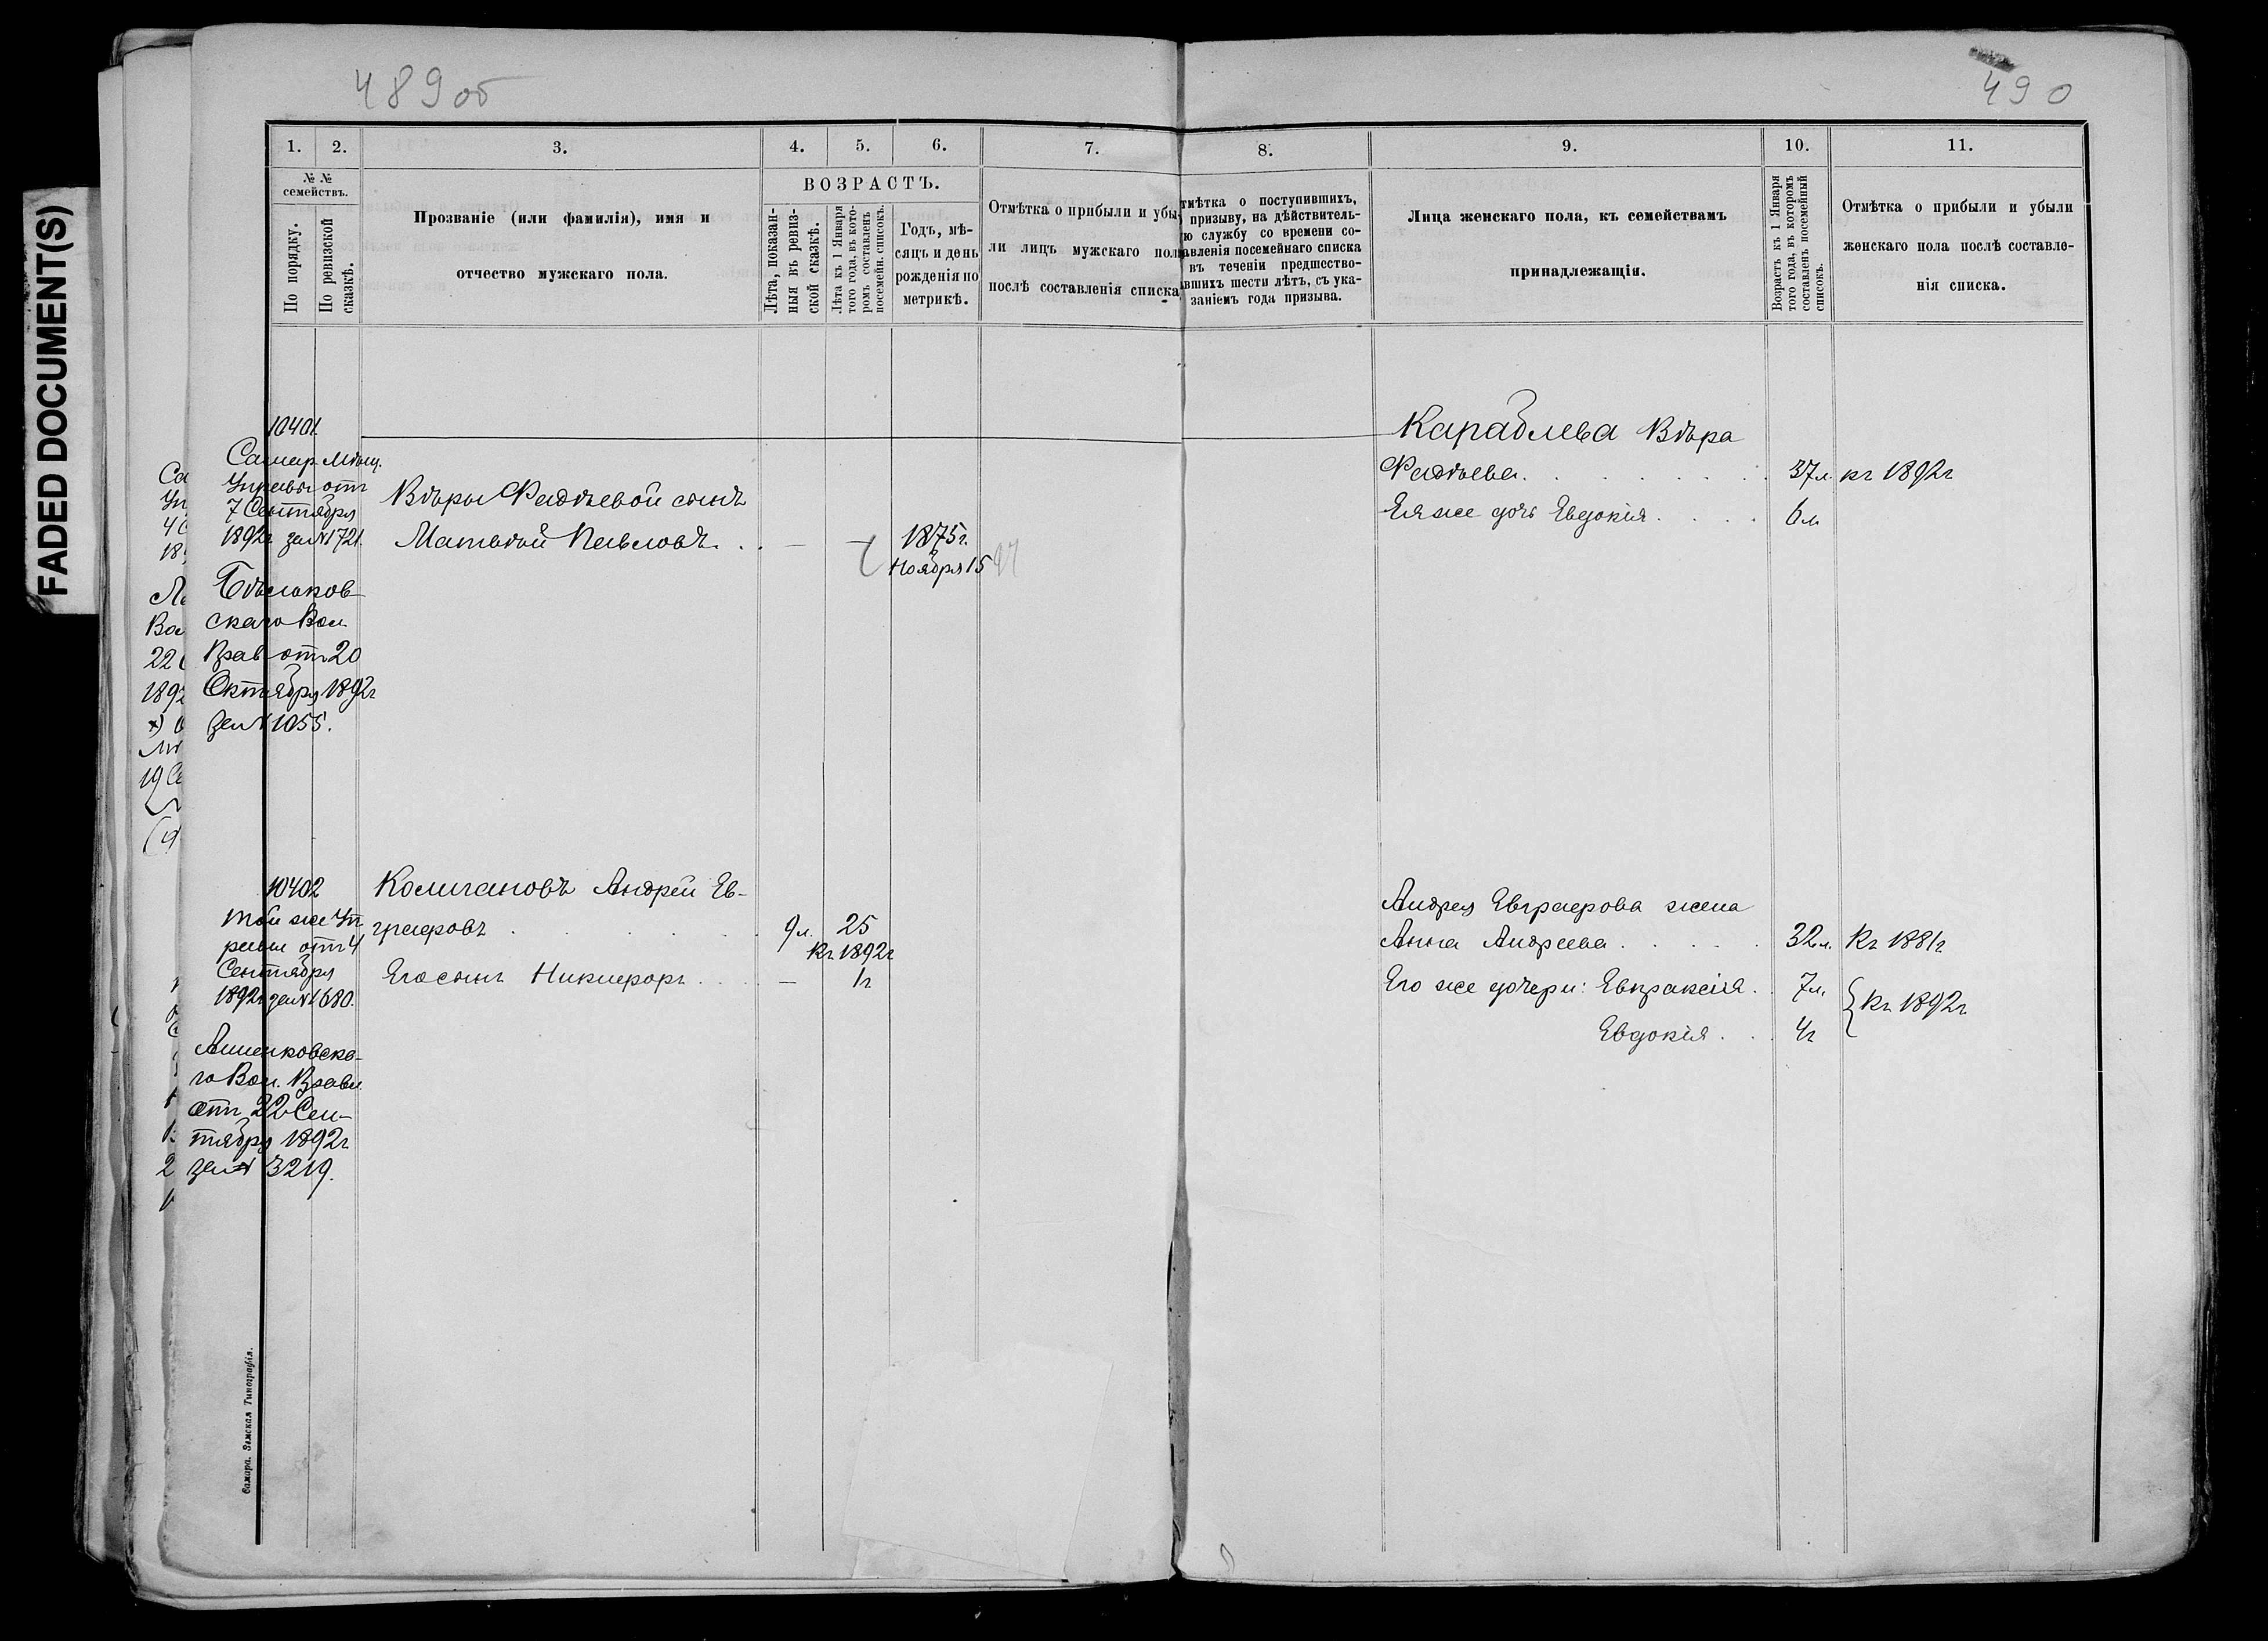 FADED DOCUMENT(S)
489об
490
1.
2.
3.
4.
5.
6.
7.
8.
9.
10.
11.
№ №
семействъ.
По порядку.
По ревизской
сказкѣ.
Прозваніе (или фамилія), имя и
отчество мужскаго пола.
ВОЗРАСТЪ.
Лѣта, показан-
ныя въ ревиз-
ской сказкѣ.
Лѣта къ 1 Января
того года, въ кото-
ромъ составленъ
посемейн. списокъ.
Годъ, мѣ-
сяцъ и день
рожденія по
метрикѣ.
Отмѣтка о прибыли и убы-
ли лицъ мужскаго пол
послѣ составленія списка
тмѣтка о поступившихъ,
призыву, на дѣйствитель-
ю службу со времени со-
авленія посемейнаго списка
въ теченіи предшество-
вшихъ шести лѣтъ, съ ука-
заніемъ года призыва.
Лица женскаго пола, къ семействамъ
принадлежащія.
Возрастъ къ 1 Января
того года, въ которомъ
составленъ посемейный
списокъ.
Отмѣтка о прибыли и убыли
женскаго пола послѣ составле-
нія списка.
10401
Самар. Мѣщ.
Управы отъ
7 Сентября
1892г за № 1721.
Бѣлоков-
скаго Вол.
Прав отъ 20
Октября 1892г
за № 1055.
Вѣры Фадѣевой сынъ
Матвѣй Павловъ. . — —
1875г.
Ноября 15
Караблева Вѣра
Фадѣева. . . . . . . 37л. къ 1892г
Ея же дочь Евдокія . . . . 6л
10402
Той же Уп
равы отъ 4
Сентября
1892г за № 1680.
Анненковска-
го Вол. Правл.
отъ 22 Сен-
тября 1892г
за № 3219.
Колигановъ Андрей Ев-
графовъ . . . . . 9л. 25
къ 1892г
Его сынъ Никифоръ . . . — 1г
Андрея Евграфова жена
Анна Андреева . . . . . 32л. Къ 1881г
Его же дочери: Евпраксія . 7л.
Къ 1892г
Евдокія . . 4г
Самара. Земская Типографія.